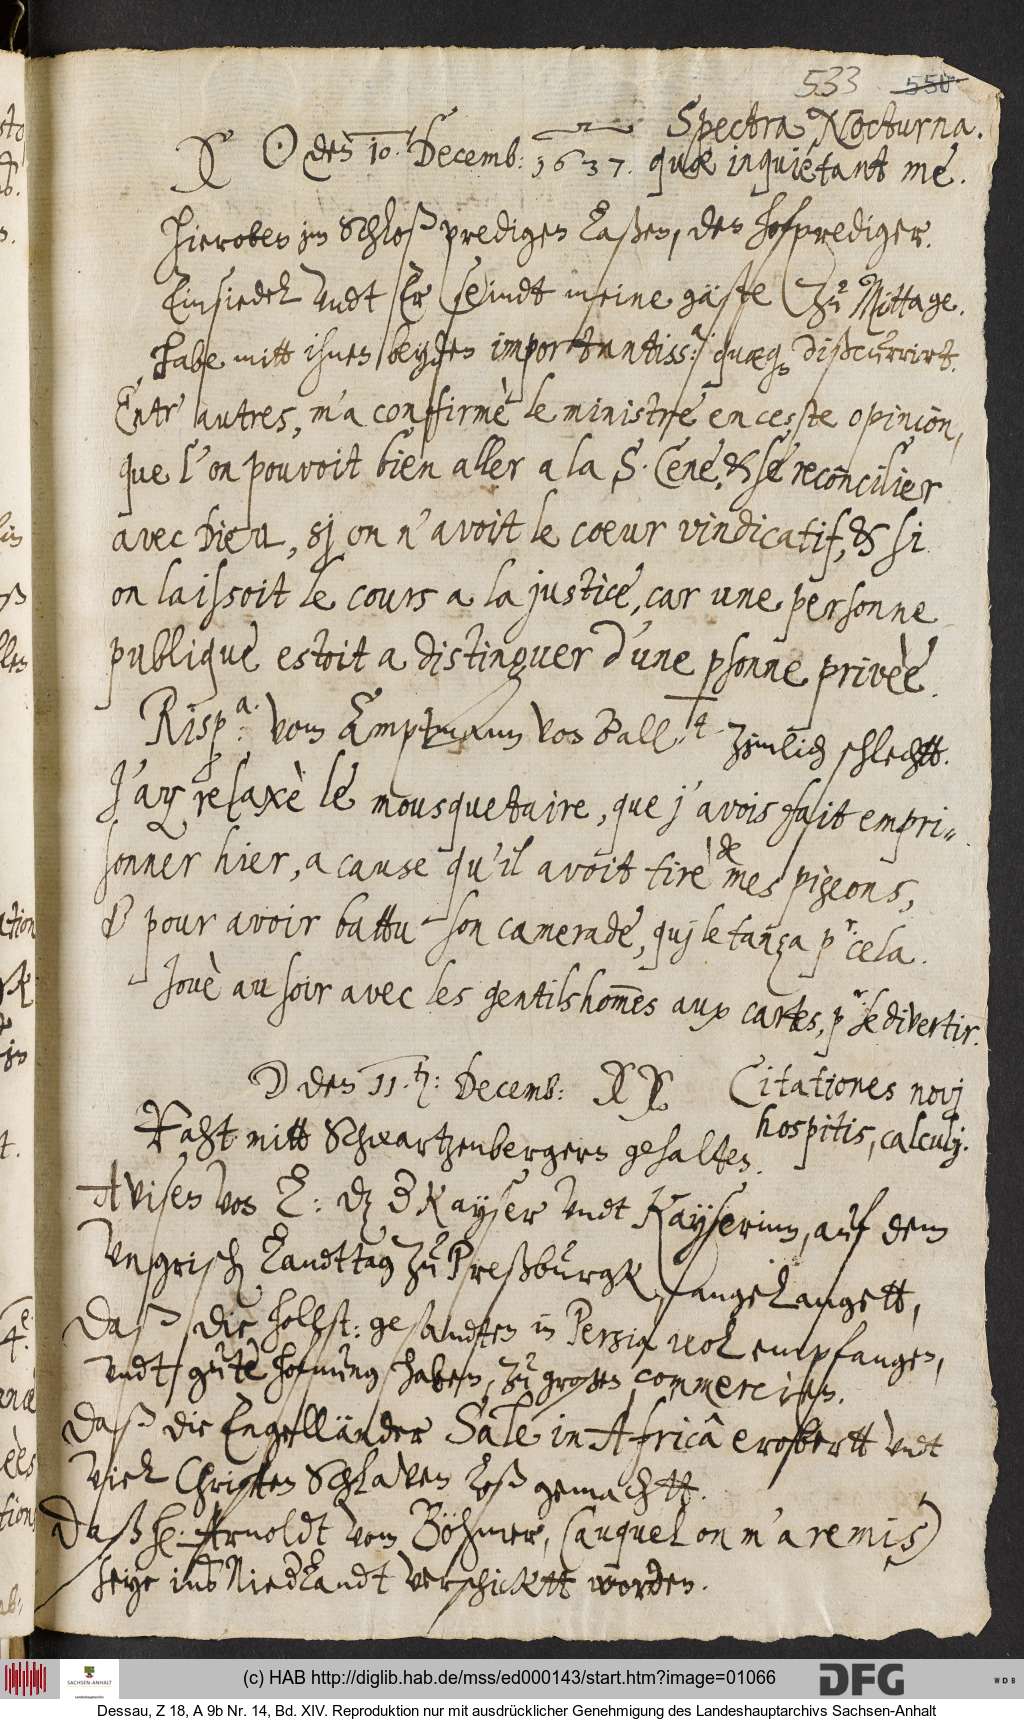 533 550
Spectra Nocturna.
X ☉ den 10. Decemb: 1637. quæ inquiètant me.
Hieroben im Schloß predigen laßen, den hofprediger.
Einsiedel undt Er seindt meine gäste zu Mittage.
Habe mitt ihnen beyden importantiss: quæq disscurrirt.
Entr' autres, m'a confirmè le ministre en ceste opinion,
que l'on pouvoit bien aller a la S. Cene, & se reconcilier
avec Dieu, sj on n'avoit le coeur vindicatif, & si
on laissoit le cours a la justice, car une personne
publique estoit a distinguer d'une psonne privèe.
Risp.a: vom Amptmann von Ball. zimlich schlechtt.
J'ay relaxè le mousquetaire, que j'avois fait empri-
sonner hier, a cause qu'il avoit tirè de mes pigeons,
& pour avoir battu son camerade, quj le tança pr cela.
Jouè au soir avec les gentilshomes aux cartes, pr se divertir.
☽ den 11.t: Decemb: X X Citationes novj
hospitis, calculj.
Raht mitt Schwartzenbergern gehalten.
Avisen von L: dz d Kayser undt Kayserinn, auf dem
Ungrisch Landttag zu Preßburgk, angelangett,
Daß die hollst: gesandten in Persia wol empfangen,
undt gute hofnung haben, zu großen commercien.
Daß die Engelländer Sale in Africâ erobertt undt
viel Christen Schlaven loß gemachtt.
Daß H. Arnoldt von Böhmer, (auquel on m'a remis)
seye ins Niedlandt verschicktt worden.
(c) HAB http://diglib.hab.de/mss/ed000143/start.htm?image=01066
SACHSEN-ANHALT
DFG
WDB
Dessau, Z 18, A 9b Nr. 14, Bd. XIV. Reproduktion nur mit ausdrücklicher Genehmigung des Landeshauptarchivs Sachsen-Anhalt